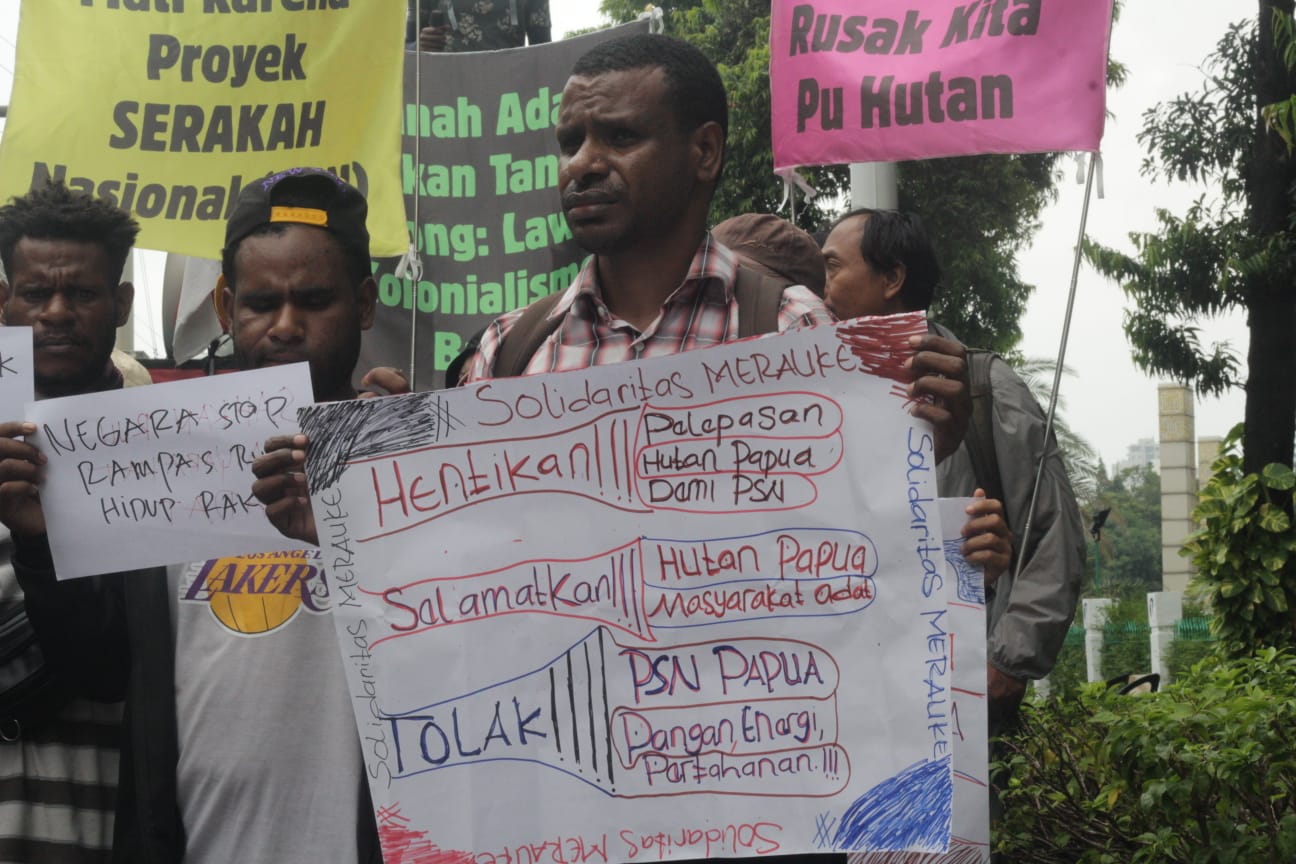 Mati karena
Proyek
SERAKAH
Nasional
anah Ada
kan Tan
ong: Law
Kolonialism
Ba
Rusak Kita
Pu Hutan
NEW
K
NEGARA STOP
RAMPAS RU
HIDUP RAK
LOS ANGELES
LAKERS
Solidaritas MERAUKE
Hentikan!!!
Pelepasan
Hutan Papua
Demi PSN
Salamatkan!!!
Hutan Papua
Masyarakat adat
TOLAK!!!!
PSN PAPUA
Pangan, Energi,
Partahanan.!!!
Solidaritas MERAUKE
Solidaritas MERAUKE
Solidaritas MERAUKE